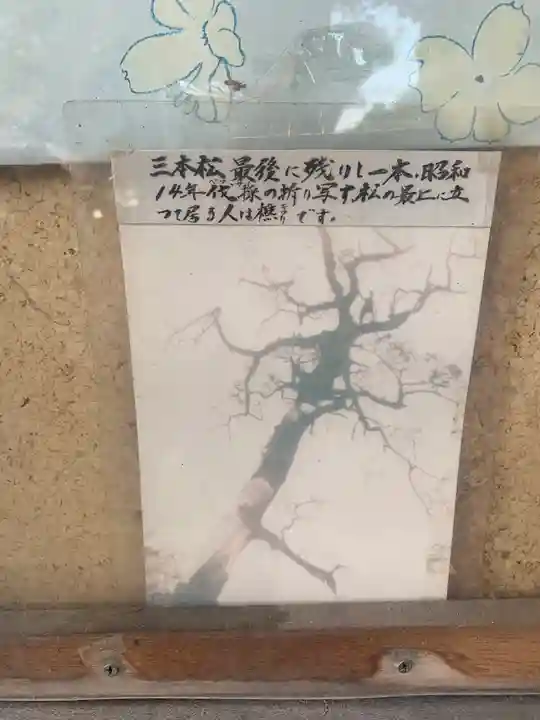 三本松最後に残りし一本、昭和
14年伐採の折り写す、松の最上に立
つて居る人は樵です。